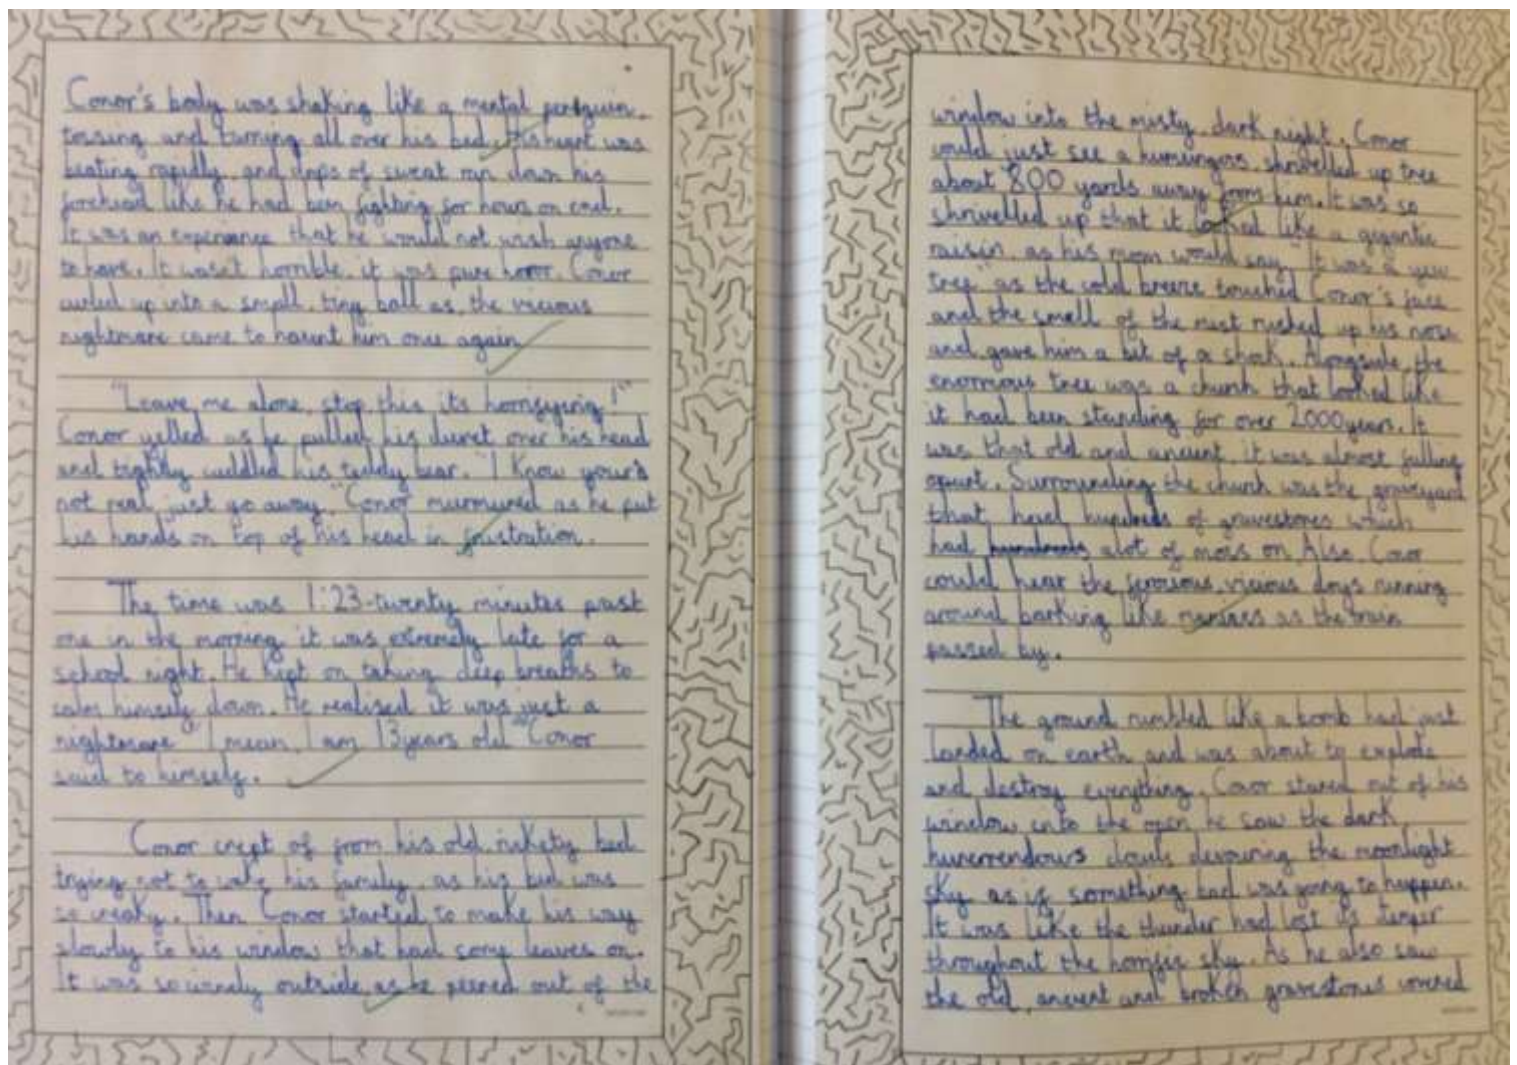 Conor's body was shaking like a mental penguin,
tossing and turning all over his bed. His heart was
beating rapidly, and drops of sweat ran down his
forehead like he had been fighting for hours on end.
It was an experiance that he would not wish anyone
to have. It wasn't horrible, it was pure horror. Conor
curled up into a small, tiny ball as the vicious
nightmare came to haunt him once again
"Leave me alone, stop this its horrifying!"
Conor yelled as he pulled his duvet over his head
and tightly cuddled his teddy bear. "I know your's
not real, just go away," Conor murmured as he put
his hands on top of his head in frustration.
The time was 1:23-twenty minutes past
one in the morning it was extremely late for a
school night. He kept on taking deep breaths to
calm himself down. He realised it was just a
nightmare "I mean, I am 13 years old" Conor
said to himself.
Conor crept of from his old, rikety bed
trying not to wake his family, as his bed was
so creaky. Then Conor started to make his way
slowly to his window that had leaves on.
It was so windy outside, as he peered out of the
window into the misty, dark night. Conor
could just see a humungors, shrivelled up tree
about 800 yards away from him. It was so
shrivelled up that it looked like a gigantic
raisin, as his mom would say, "It was a yew
tree" as the cold breeze touched Conor's face
and the smell of the mist rushed up his nose
and gave him a bit of a shock. Alongside, the
enormous tree was a church that looked like
it had been standing for over 2000 years. It
was that old and ancient, it was almost falling
apart. Surrounding the church was the graveyard
that had hundreds of gravestones which
had alot of moss on. Also, Conor
could hear the ferocious, vicious dogs running
around barking like maniacs as the train
passed by.
The ground rumbled like a bomb had just
landed on earth and was about to explode
and destroy everything. Conor stared out of his
window into the open he saw the dark,
clouds devouring the moonlight
sky as if something bad was going to happen.
It was like the thunder had lost its temper
throughout the horrific sky. As he also saw
the old, ancient and broken gravestones covered